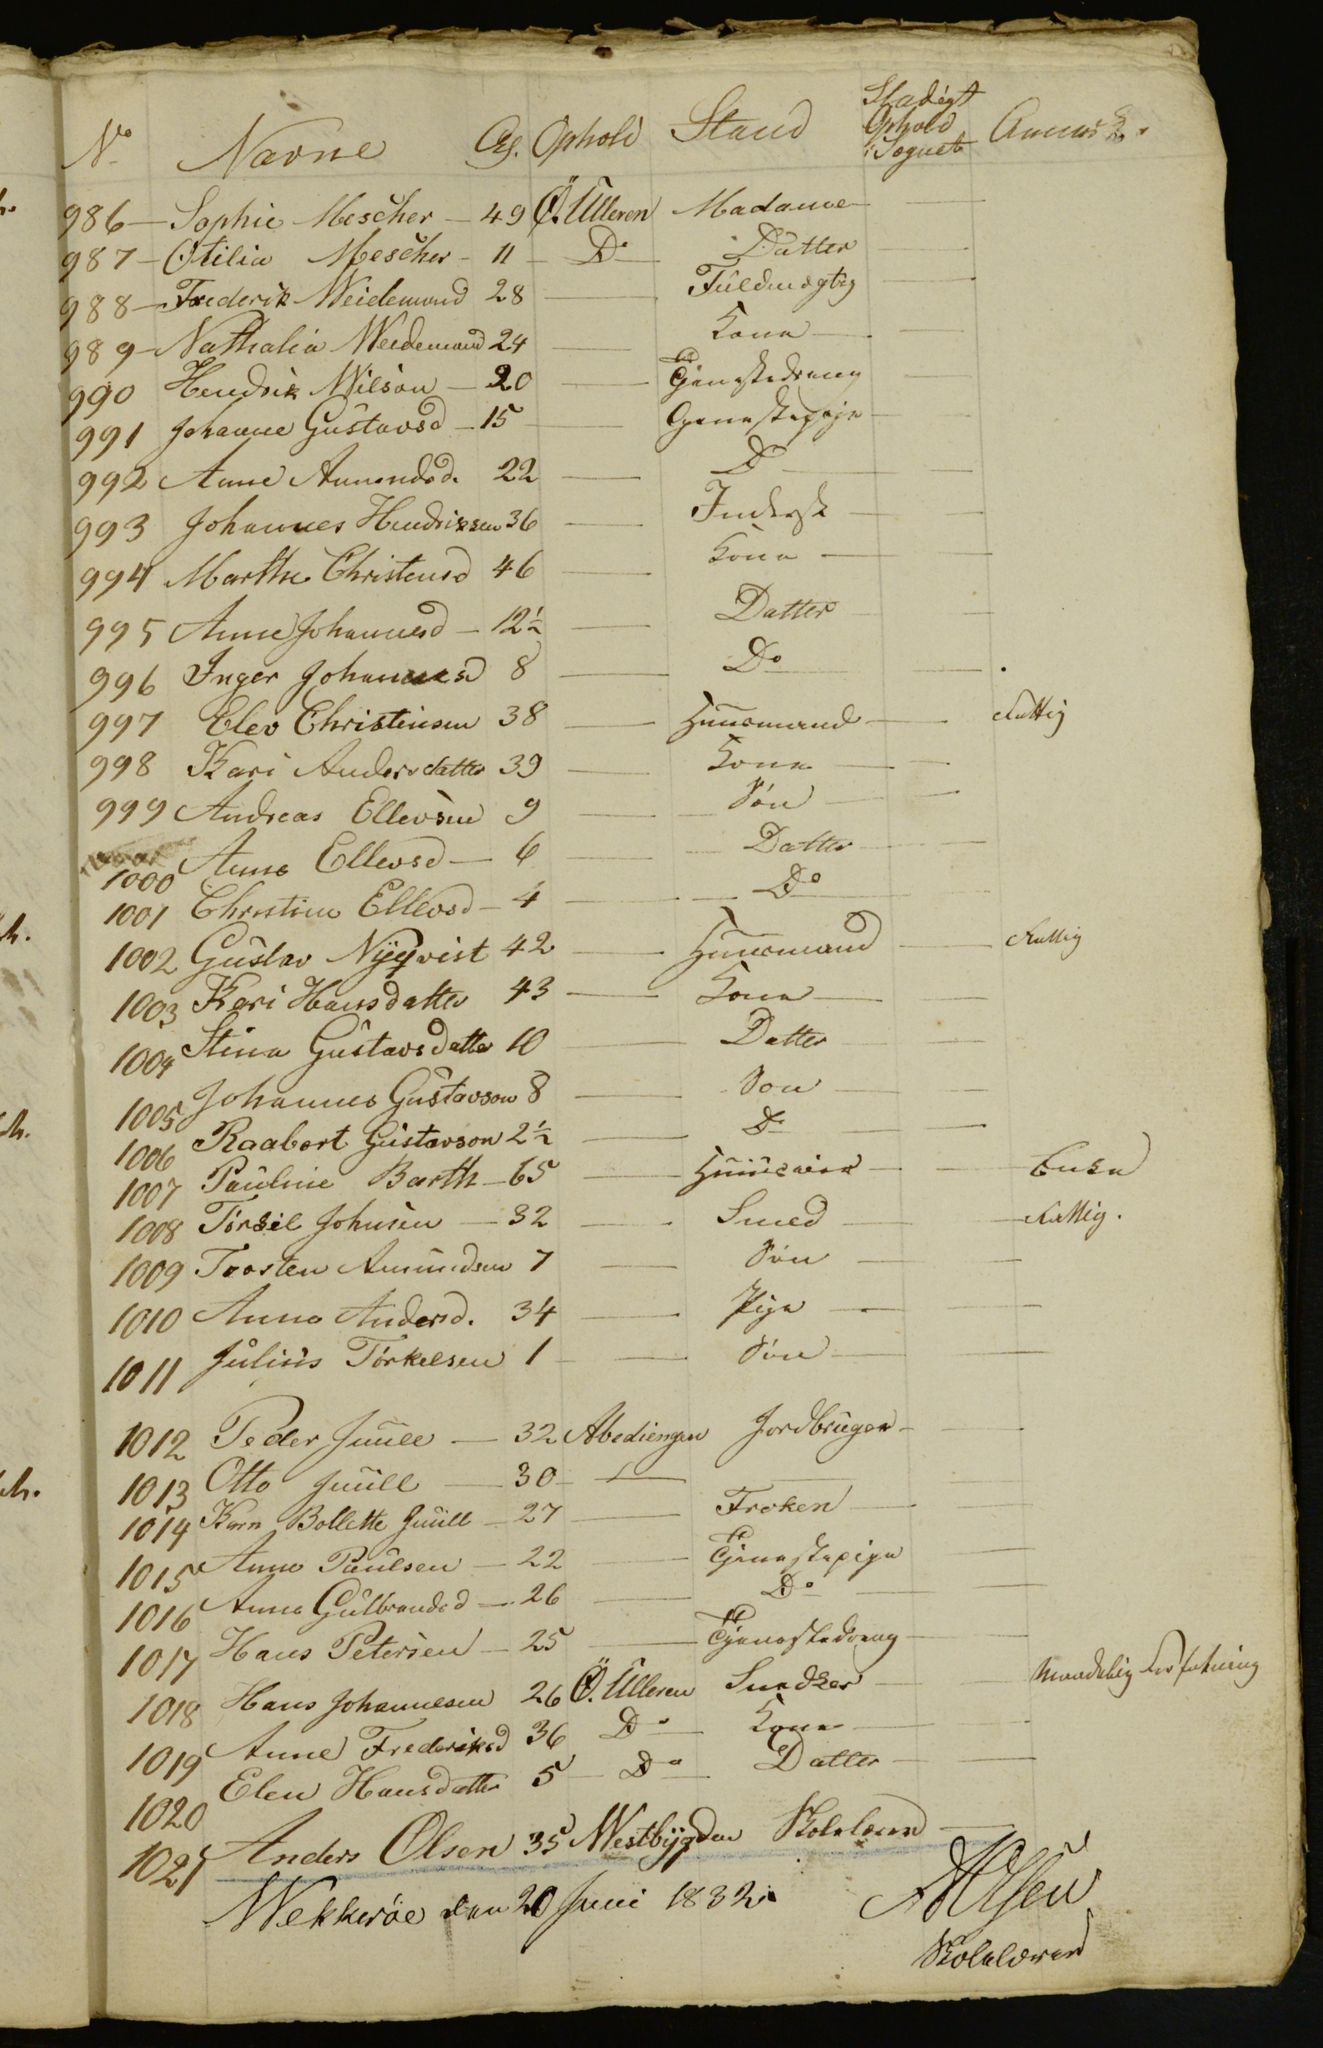 No Navne Ophold Stand Stadigt Ophold i Sognet
986 — Sophie Mescher — 49 Ö. Ulleren Madame
987 — Otilia Mescher — 11 — Do Datter
988 — Frederik Weidemand 28 — Fuldmægtig
989 — Nathalia Weidemand 24 — Kone
990 Hendrik Nilson — 20 — Tjenestedreng
991 Johanne Gustavsd — 15 — Tjenestepige
992 Anne Amundsd. 22 — Do
993 Johannes Hendriksen 36 — Inderst
994 Marthe Christensd 46 — Kone
995 Anne Johannesd — 12½ — Datter
996 Inger Johannesd 8 — Do
997 Elev Christensen 38 — Huusmand — Fattig
998 Kari Andersdatter 39 — Kone
999 Andreas Ellevsen 9 — Sön
1000 Anne Ellevsd — 6 — Datter
1001 Christine Ellevsd — 4 — Do
1002 Gustav Nÿqvist 42 — Huusmand — Fattig
1003 Kari Hansdatter 43 — Kone
1004 Stina Gustavsdatter 10 — Datter
1005 Johannes Gustavson 8 — Sön
1006 Raabert Gustavson 2½ — Do
1007 Pauline Barth — 65 — Huuseier — Enke
1008 Törkel Johnsen — 32 — Smed — Fattig.
1009 Torsten Amundsen 7 — Sön
1010 Anne Andersd. 34 — Pige
1011 Julius Törkelsen 1 — Sön
1012 Peder Juull — 32 Abediengen Jordbruger
1013 Otto Juull — 30 —
1014 Karn Bollette Juull — 27 — Frøken
1015 Anne Paulsen — 22 — Tjenestepige
1016 Anne Gulbrandsd — 26 — Do
1017 Hans Petersen — 25 — Tjenestedreng
1018 Hans Johannesen 26 Ö. Ulleren Snedker — Maadelig Forfatning
1019 Anne Frederiksd 36 Do Kone
1020 Elen Hansdatter 5 — Do Datter
1021 Anders Olsen 35 Westbÿgden Skolelærer
Wekkeröe den 20 Juni 1832.
A Olsen
Skolelærer